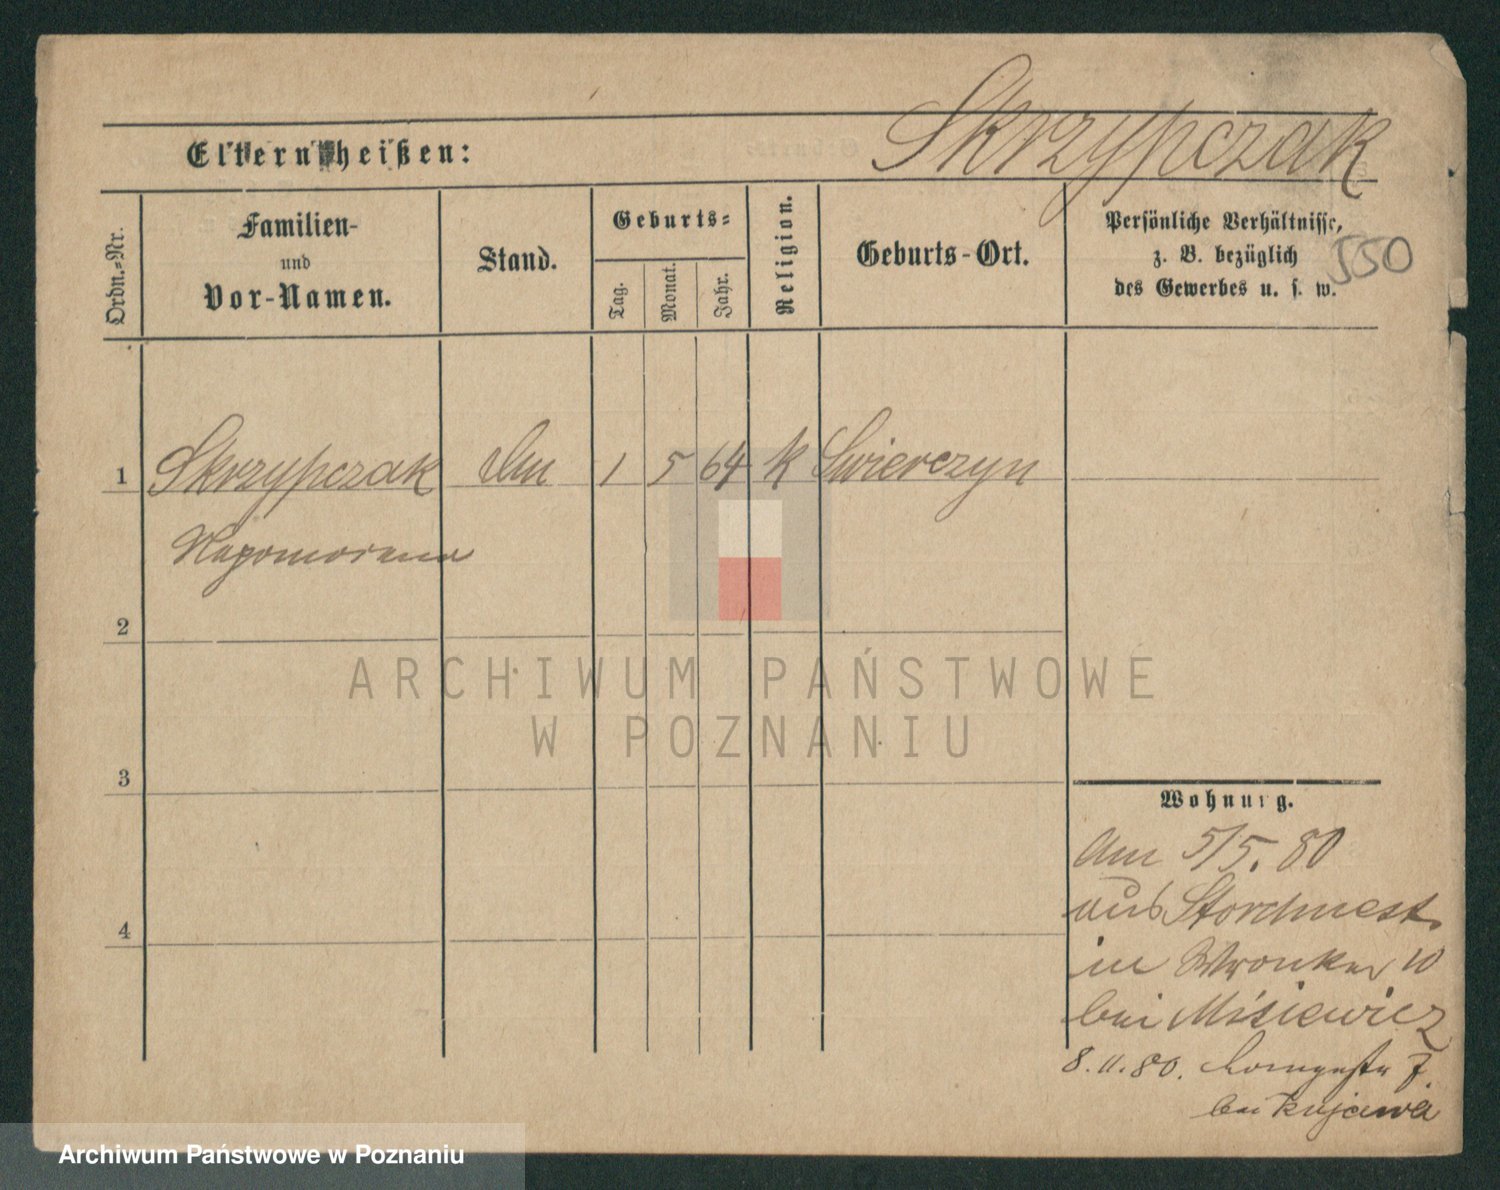 Skrzypczak
Eltern heißen:
Ordn.-Nr.
Familien-
und
Vor-Namen.
Stand.
Geburts-
Tag.
Monat.
Jahr.
Religion.
Geburts-Ort.
Persönliche Verhältnisse,
z. B. bezüglich
des Gewerbes u. s. w.
550
1 Skrzypczak 1 5 64 k Swierczyn
2
3
4
Wohnung.
Am 5/5. 80
aus Storchnest
in Wronker 10
bei Misiewicz
8.11.80.
bei Kujawa
ARCHIWUM PAŃSTWOWE
W POZNANIU
Archiwum Państwowe w Poznaniu